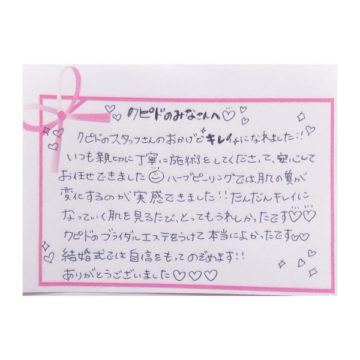 クピドのみなさんへ♡
クピドのスタッフさんのおかげでキレイになれました!!
いつも親切に丁寧に施術をしてくださって、安心して
お任せできました☺ ハーブピーリングでは肌の質が
変化するのが実感できました!! だんだんキレイに
なっていく肌を見るたび、とってもうれしかったです♡♡
クピドのブライダルエステをうけて本当によかったです♡
結婚式では自信をもってのぞめます!!
ありがとうございました♡♡♡